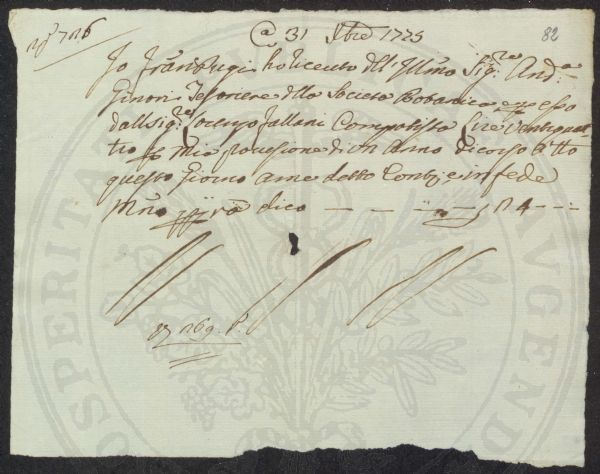 82
@ 31 Xbre 1725
Io Franc: Lugi ho riceuto dell' Illmo Sigre And:a
Ginori Tesoriere della Società Botanica e p esso
dall Sigre Lorenzo Fallani Computista Lire Ventiquat
tro p mia provisione di un Anno di corso a tto
questo Giorno a me detto Contj e in fede
Mno ppria dico — — — 24 —
PROSPERITATI AVGENDAE